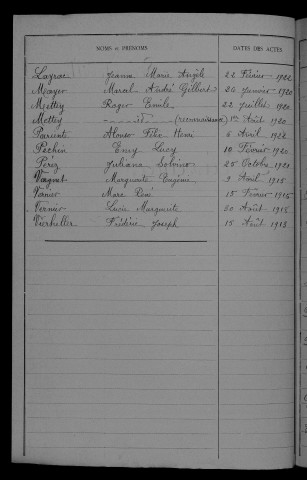 NOMS ET PRÉNOMS DATES DES ACTES
Layrac Jeanne Marie Angèle 22 Février 1922
Mayer Marcel André Gilbert 26 Janvier 1920
Mettey Roger Emile 22 Juillet 1920
Mettey — id — (reconnaissance) 1er Août 1920
Pariente Alonso Félix Henri 6 Avril 1922
Péchin Eny Lucy 10 Février 1920
Pérez Juliana 25 Octobre 1921
Marguerite Eugénie 9 Avril 1915
Vernier Marc René 15 Février 1915
Vernier Lucie Marguerite 30 Août 1915
Vierheller Frédéric Joseph 15 Août 1918